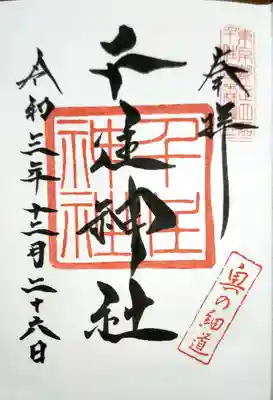 奉拝
千住神社
千住
神社
奥の細道
令和三年十二月二十六日